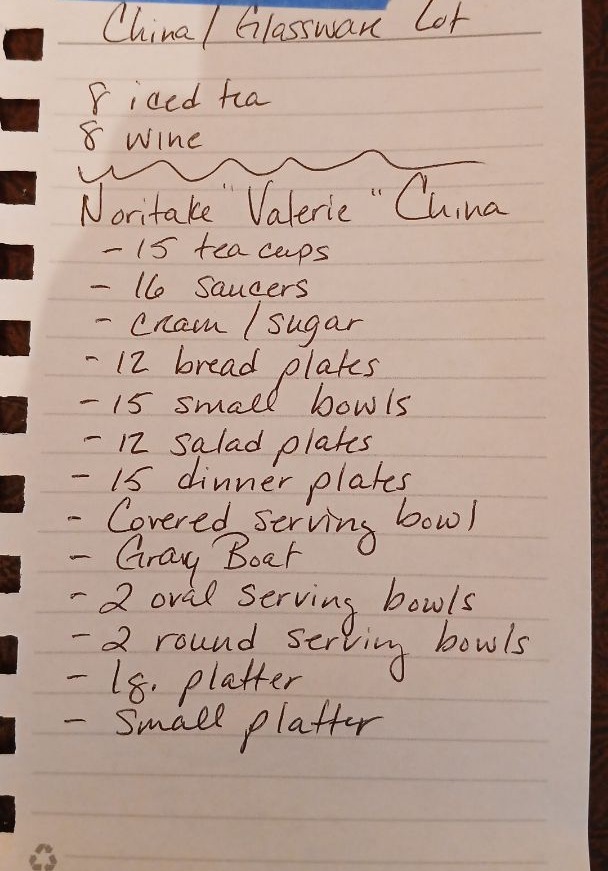 China / Glassware Lot
8 iced tea
8 wine
Noritake "Valerie" China
- 15 tea cups
- 16 saucers
- cream / sugar
- 12 bread plates
- 15 small bowls
- 12 salad plates
- 15 dinner plates
- Covered serving bowl
- Gravy Boat
- 2 oval serving bowls
- 2 round serving bowls
- lg. platter
- small platter